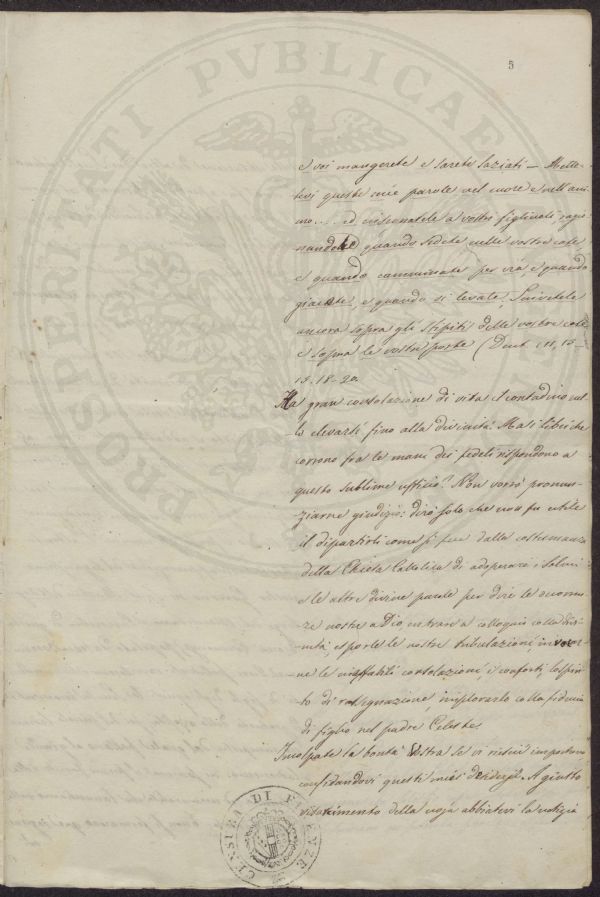 5
e voi mangerete e sarete saziati — Mette-
tevi queste mie parole nel cuore e nell'ani-
mo.... ed insegnatele a vostri figliuoli ragio-
nandole quando sedete nelle vostre case
e quando camminate per via e quando
giacete, e quando vi levate. Scrivetele
ancora sopra gli stipiti delle vostre case
e sopra le vostre porte (Deut. XI, 15
15. 18-20.
Ha gran consolazione di vita il contadino nel-
lo elevarsi fino alla divinità. Ma i libri che
corrono fra le mani dei fedeli rispondono a
questo sublime ufficio? Non vorrò pronun-
ziarne giudizio: dirò solo che non fu utile
il dipartirsi come si fece dalla costumanza
della Chiesa Cattolica di adoperare i Salmi
e le altre divine parole per dire le
nostre a Dio entrare a colloquio colla divi-
nità, esporle le nostre tribulazioni,
ne le ineffabili consolazioni, i conforti, lo spiri-
to di rassegnazione, implorarlo colla fiducia
di figlio nel padre Celeste.
Incolpate la bontà Vostra se vi riesco importuno
confidandovi questi miei desiderj. A giusto
risarcimento della noja abbiatevi la notizia
CIVITATI PVBLICAE PROS
CENSITA DI FIRENZE